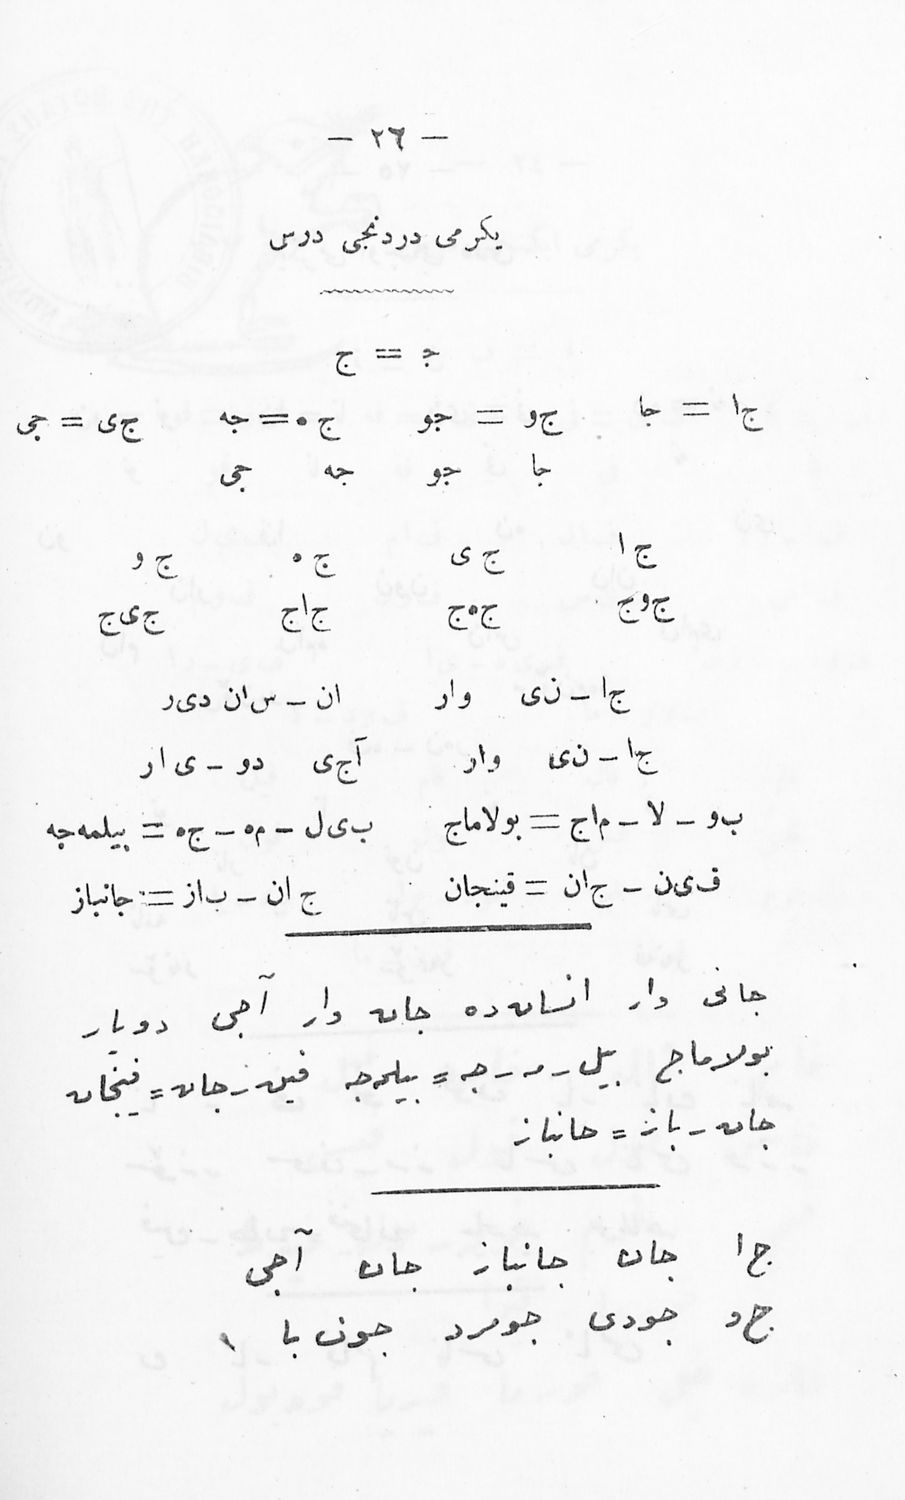 — ٢٦ —
یكرمی دردنجی درس
ﺟ = ج
ج‌ا = جا ج‌و = جو ج‌ه = جه ج‌ی = جی
جا جو جه جی
ج ا ج ی ج ه ج و
ج‌وج ج‌ه‌ج ج‌اج ج‌ی‌ج
ج‌ا – ن‌ی وار ان – س‌ان دی‌ر
ج‌ا – ن‌ی وار آج‌ی دو – ی ار
ب‌و – لا – م‌اج = بولاماج ب‌ی‌ل – م‌ه – ج‌ه = بیلمه‌جه
ف‌ی‌ن – ج‌ان = قینجان ج ان – ب‌از = جانباز
جانی وار انسان‌ده جان وار آجی دویار
بولاماج بیل – مه – جه = بیلمه‌جه فین – جان = فینجان
جان – باز = جانباز
ج ا جان جانباز جان آجی
ج‌و جودی جومرد جون با